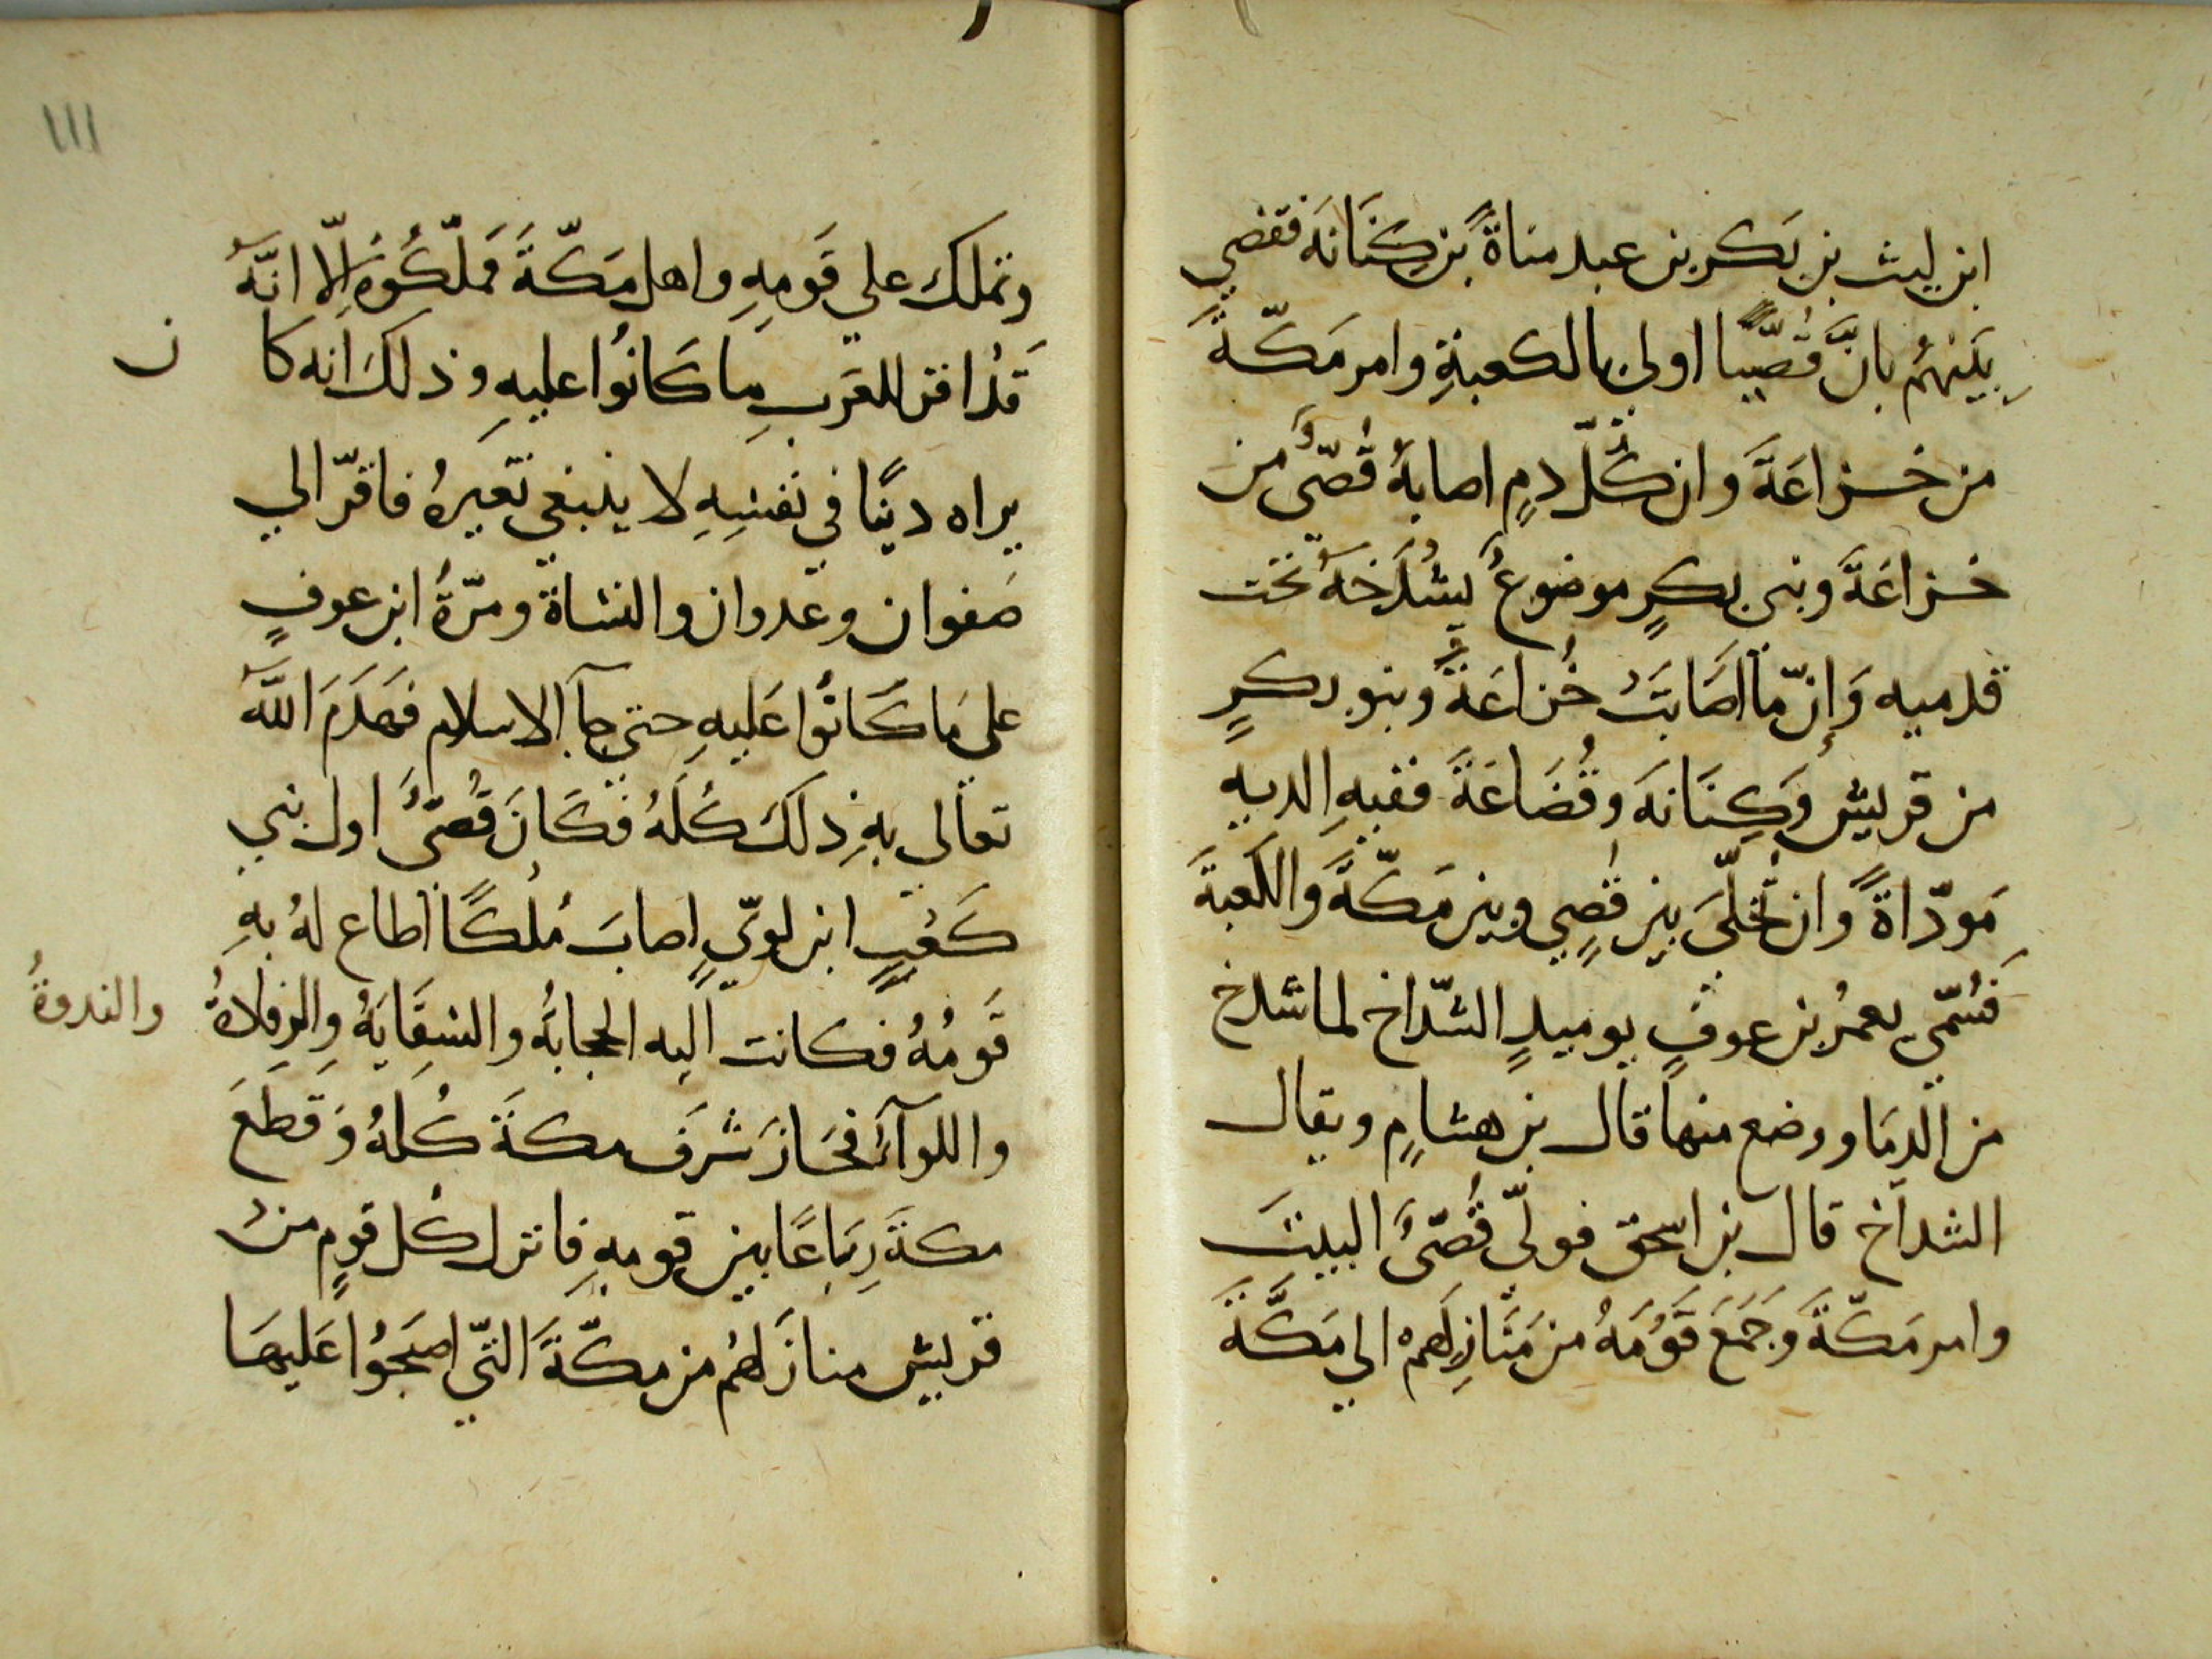 ابن ليث بن بَكر بن عبد مناةً بن كِنَانَه فقضي
بَينهُم بانَّ قُصَيًّا اولي بالكعبةِ وامر مَكّةَ
من خزاعَةَ وان كُلّ دمٍ اصابهُ قُصَىٌّ من
خزاعَةَ وبني بكرٍ موضوعٌ يَشْدَخهُ تحت
قدميه وَإنّ ما اصَابَتْ خُزاعَةُ وبنو بكرٍ
من قريش وَكِنَانَه وقُضَاعَةَ ففيهِ الديه
مَودّاةً وان نُخَلّيَ بين قصيٍ وبين مَكّةَ والكَعبةَ
فَسُمّي يعمُر بن عوفٍ يوميذٍ الشدّاخ لما شدخ
من الدِمَا ووضع منها قال بن هشامٍ ويقال
الشداخ قال بن اسحق فولّي قُصَىٌّ البيتَ
وامر مَكّةَ وَجَمَعَ قَوْمَهُ من مَنَازِلهم الي مَكّةَ
١١١
وتملك علي قَومِهِ واهل مَكّةَ فملّكُوهُ إلّا انّهُ
قَدْ اقر للعَربِ ما كَانُوا عليهِ وذلكَ انه كان
يراه دينًا في نفسِهِ لا ينبغي تغيرهُ فاقرّ الي
صَفوان وعَدوان والنشاة ومرّةُ ابن عوفٍ
علي مَا كَانُوا عَليهِ حتي جآ الاسلام فهَدَمَ اللّهُ
تعالي بهِ ذلكَ كُلَهُ فَكَانَ قُصَىٌّ اول بني
كَعبٍ ابن لويٍّ اصابَ مُلْكًا اطاع لهُ بهِ
قَومُهُ فكانت اليه الحجابةُ والسِقَايَةُ والرِفادةُ والندوةُ
واللوآءُ فحَازَ شَرَفَ مكةَ كُلهُ وَقَطَعَ
مكةَ رِبَاعًا بين قومهِ فانزل كُل قومٍ من
قريش منازَلهُم من مكّةَ التّي اصبَحُوا عَليهَا